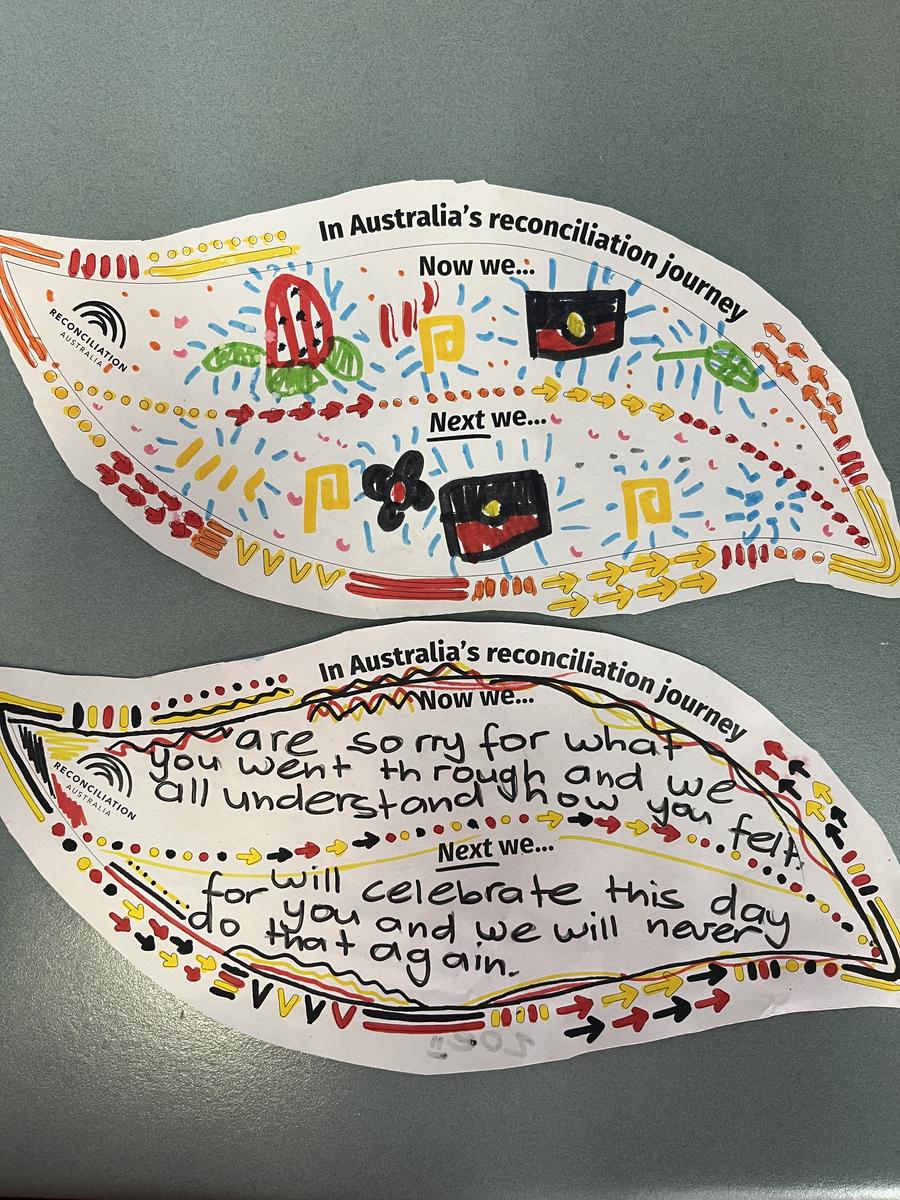 In Australia's reconciliation journey
Now we...
RECONCILIATION
AUSTRALIA
Next we...
In Australia's reconciliation journey
Now we...
are sorry for what
you went through and we
all understand how you
felt.
RECONCILIATION
AUSTRALIA
Next we...
will celebrate this day
for you and we will never
do that again.